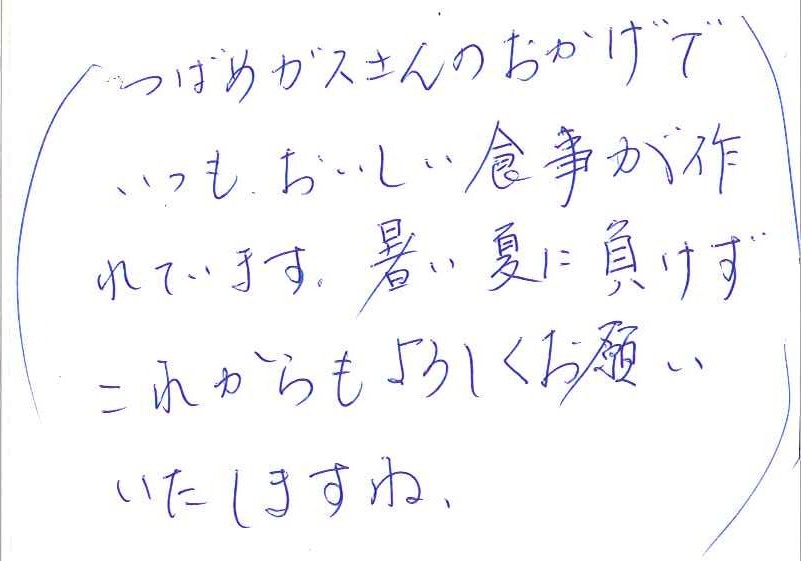 つばめガスさんのおかげで
いつも、おいしい食事が作
れています。暑い夏に負けず
これからもよろしくお願い
いたしますね、